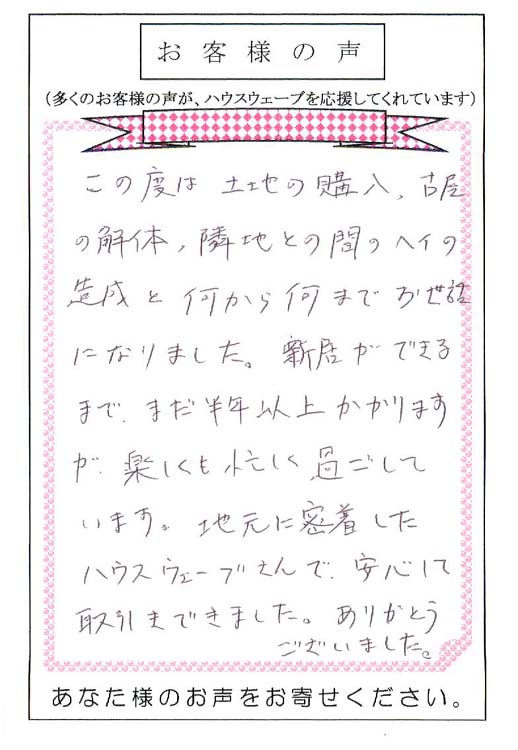 お客様の声
（多くのお客様の声が、ハウスウェーブを応援してくれています）
この度は 土地の購入、古屋
の解体、隣地との間のヘイの
造成と何から何までお世話
になりました。新居ができる
まで、まだ半年以上かかります
が、楽しくも忙しく過ごして
います。地元に密着した
ハウスウェーブさんで、安心して
取引きできました。ありがとう
ございました。
あなた様のお声をお寄せください。